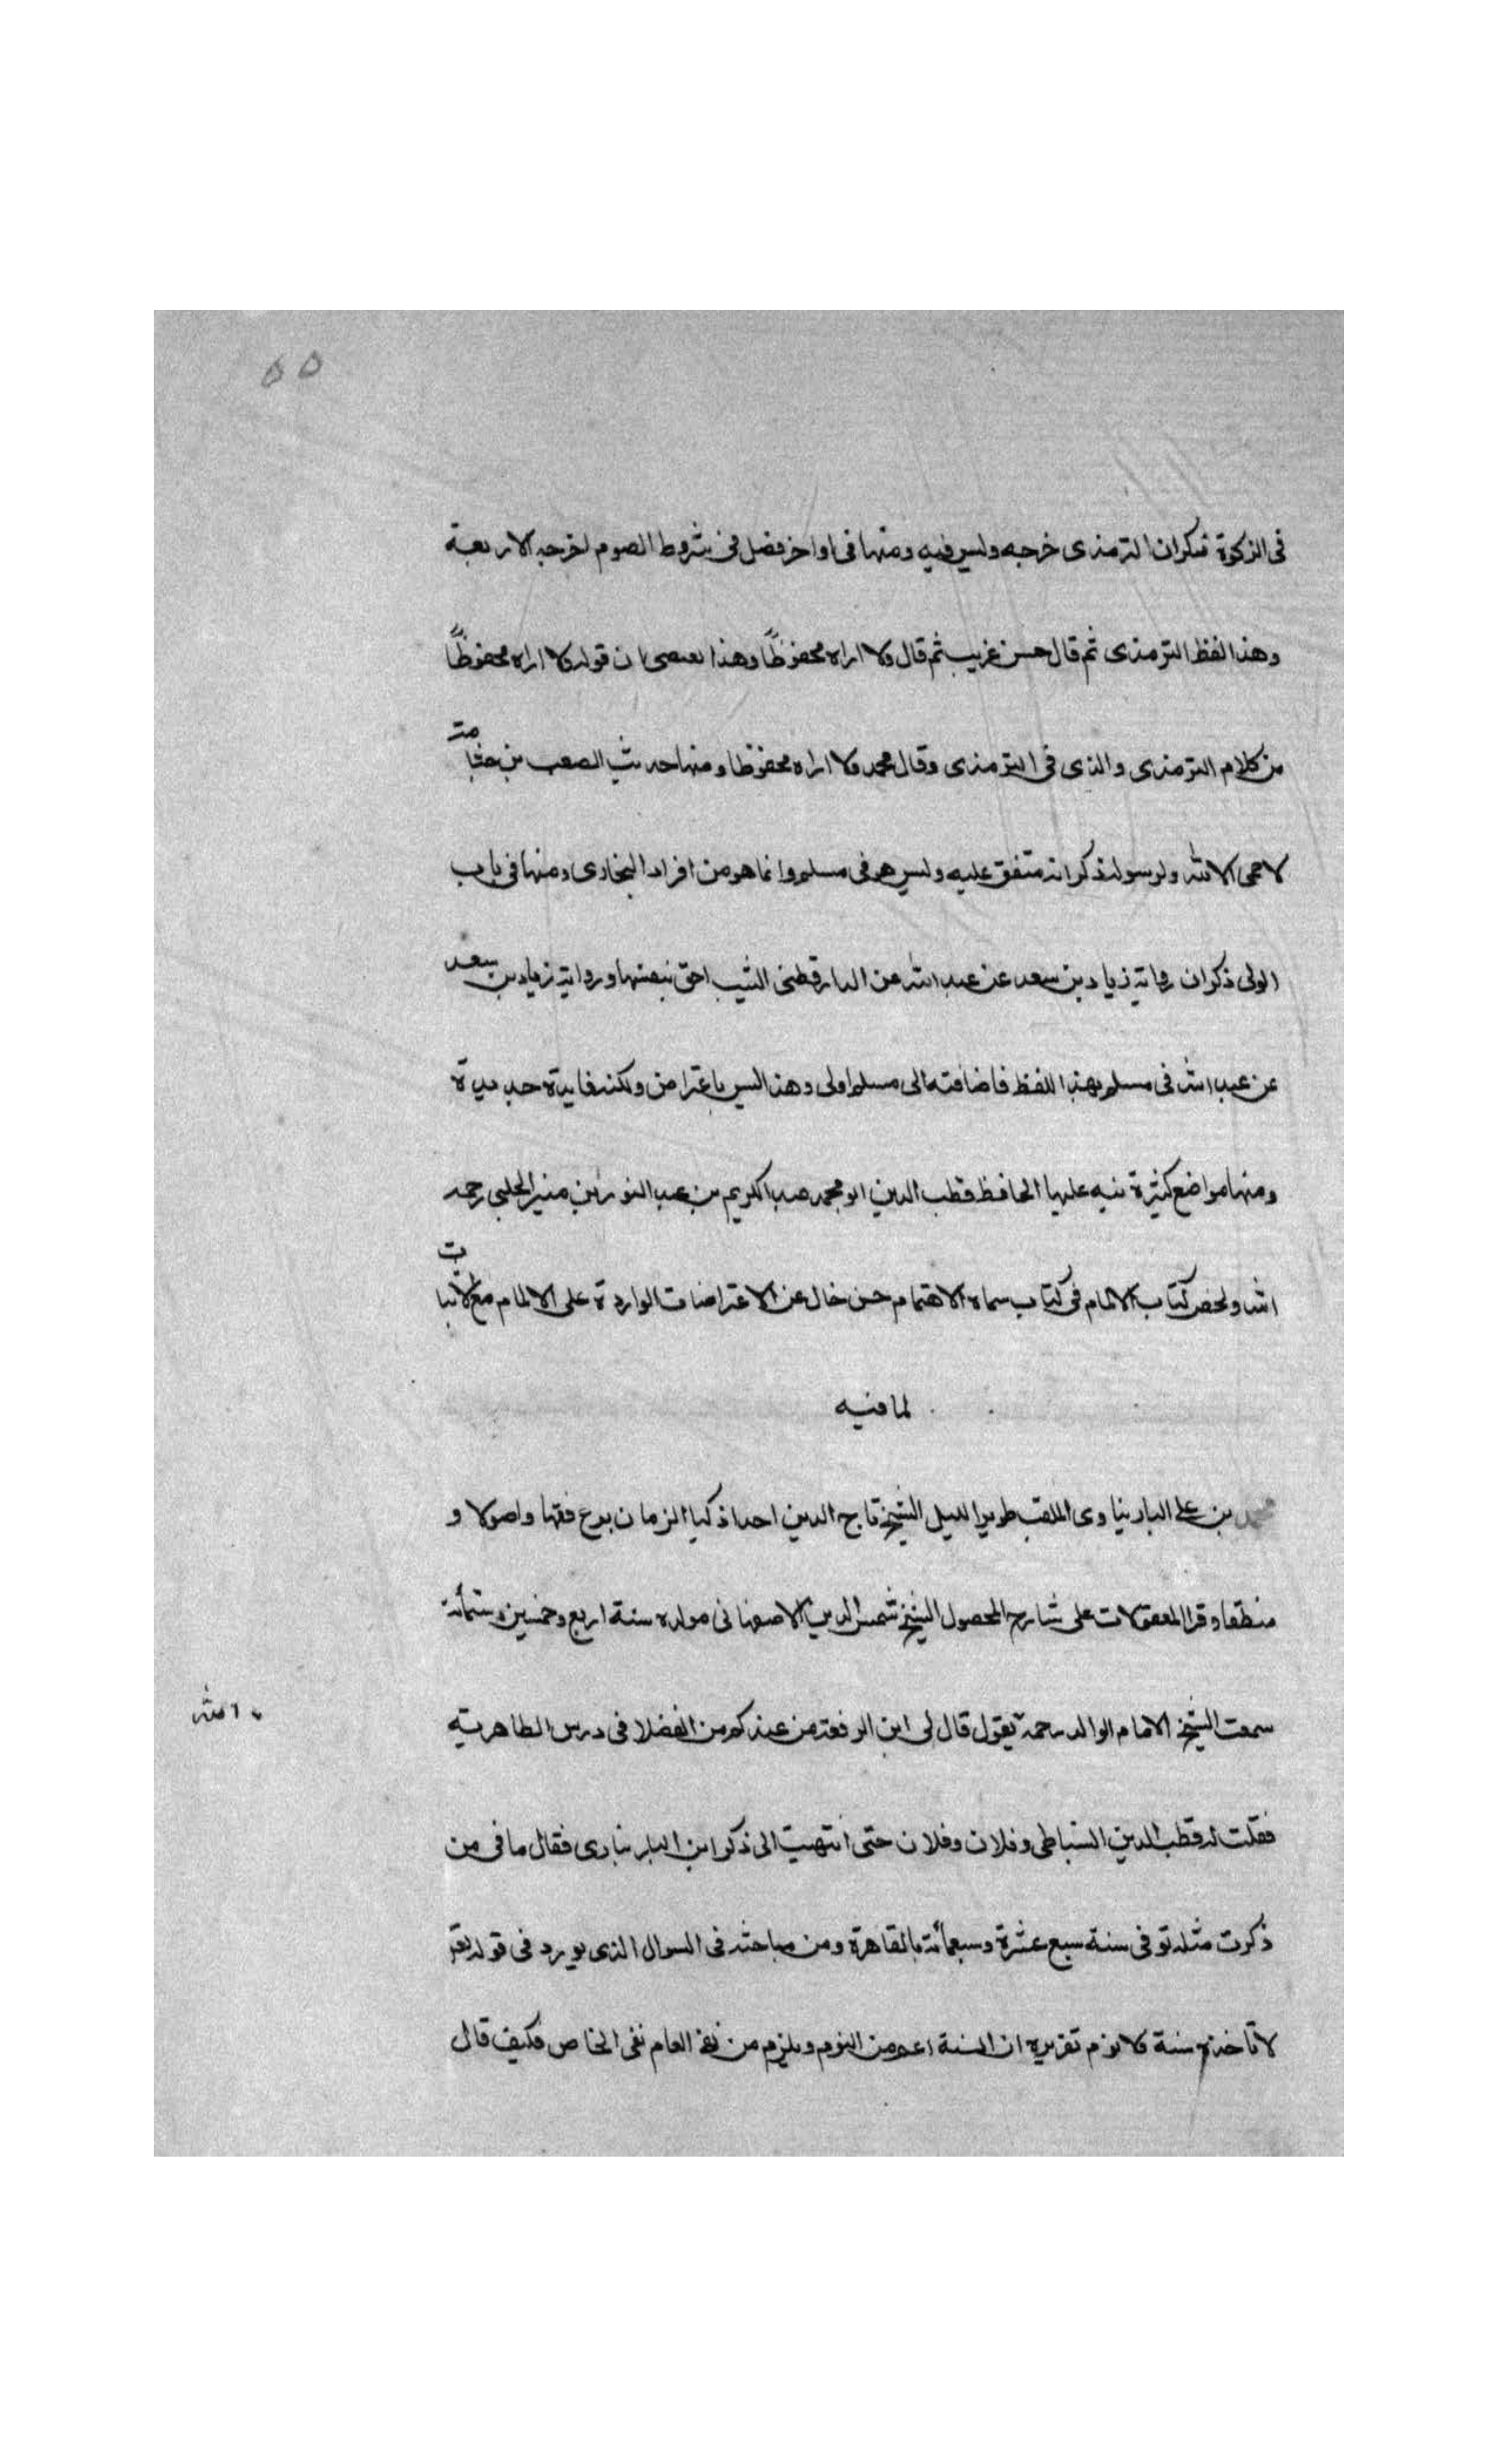 ٥٥
فى الزكوة فذكران الترمذى خرجه وليس فيه ومنها فى اواخر فصل فى شروط الصوم اخرجه الاربعة
وهذا لفظ الترمذى ثم قال حسن غريب ثم قال ولا اراه محفوظًا وهذا يعصى ان قوله ولا اراه محفوظًا
من كلام الترمذى والذى فى الترمذى وقال محمد ولا اراه محفوظا ومنها حديث الصعب بن جثامة
لا حمى الا لله ولرسوله ذكر انه متفق عليه وليس هو فى مسلم وانما هو من افراد البخارى ومنها فى باب
الولى ذكر ان رواية زياد بن سعد عن عبد الله عن الدارقطنى الثيب احق بنفسها ورواية زياد بن سعد
عن عبد الله فى مسلم بهذا اللفظ فاضافته الى مسلم اولى وهذا ليس باعتراض ولكنه فايدة حديدة
ومنها مواضع كثيرة نبه عليها الحافظ قطب الدين ابو محمد عبد الكريم بن عبد النور بن منير الحلبى رحمه
الله ولخص كتاب الالمام فى كتاب سماه الاهتمام حسن خال عن الاعتراضات الواردة على الالمام مع الاتيان
لما فيه
محمد بن على البارنباوى الملقب طوير الليل الشيخ تاج الدين احد اذكيا الزمان برع فقها واصولا و
منطقا وقرا المعقولات على شارح المحصول الشيخ شمس الدين الاصفهانى مولده سنة اربع وخمسين وستمائة
سمعت الشيخ الامام الوالد رحمه يقول قال لى ابن الرفعة من عندكم من الفضلا فى درس الظاهرية
الله
فقلت له قطب الدين السنباطى وفلان وفلان حتى انتهيت الى ذكر ابن البارنبارى فقال ما فى من
ذكرت مثله توفى سنة سبع عشرة وسبعمائة بالقاهرة ومن مباحثه فى السوال الذى يورد فى قوله تعالى
لا تاخذه سنة ولا نوم تقريره ان السنة اعم من النوم ويلزم من نفى العام نفى الخاص فكيف قال